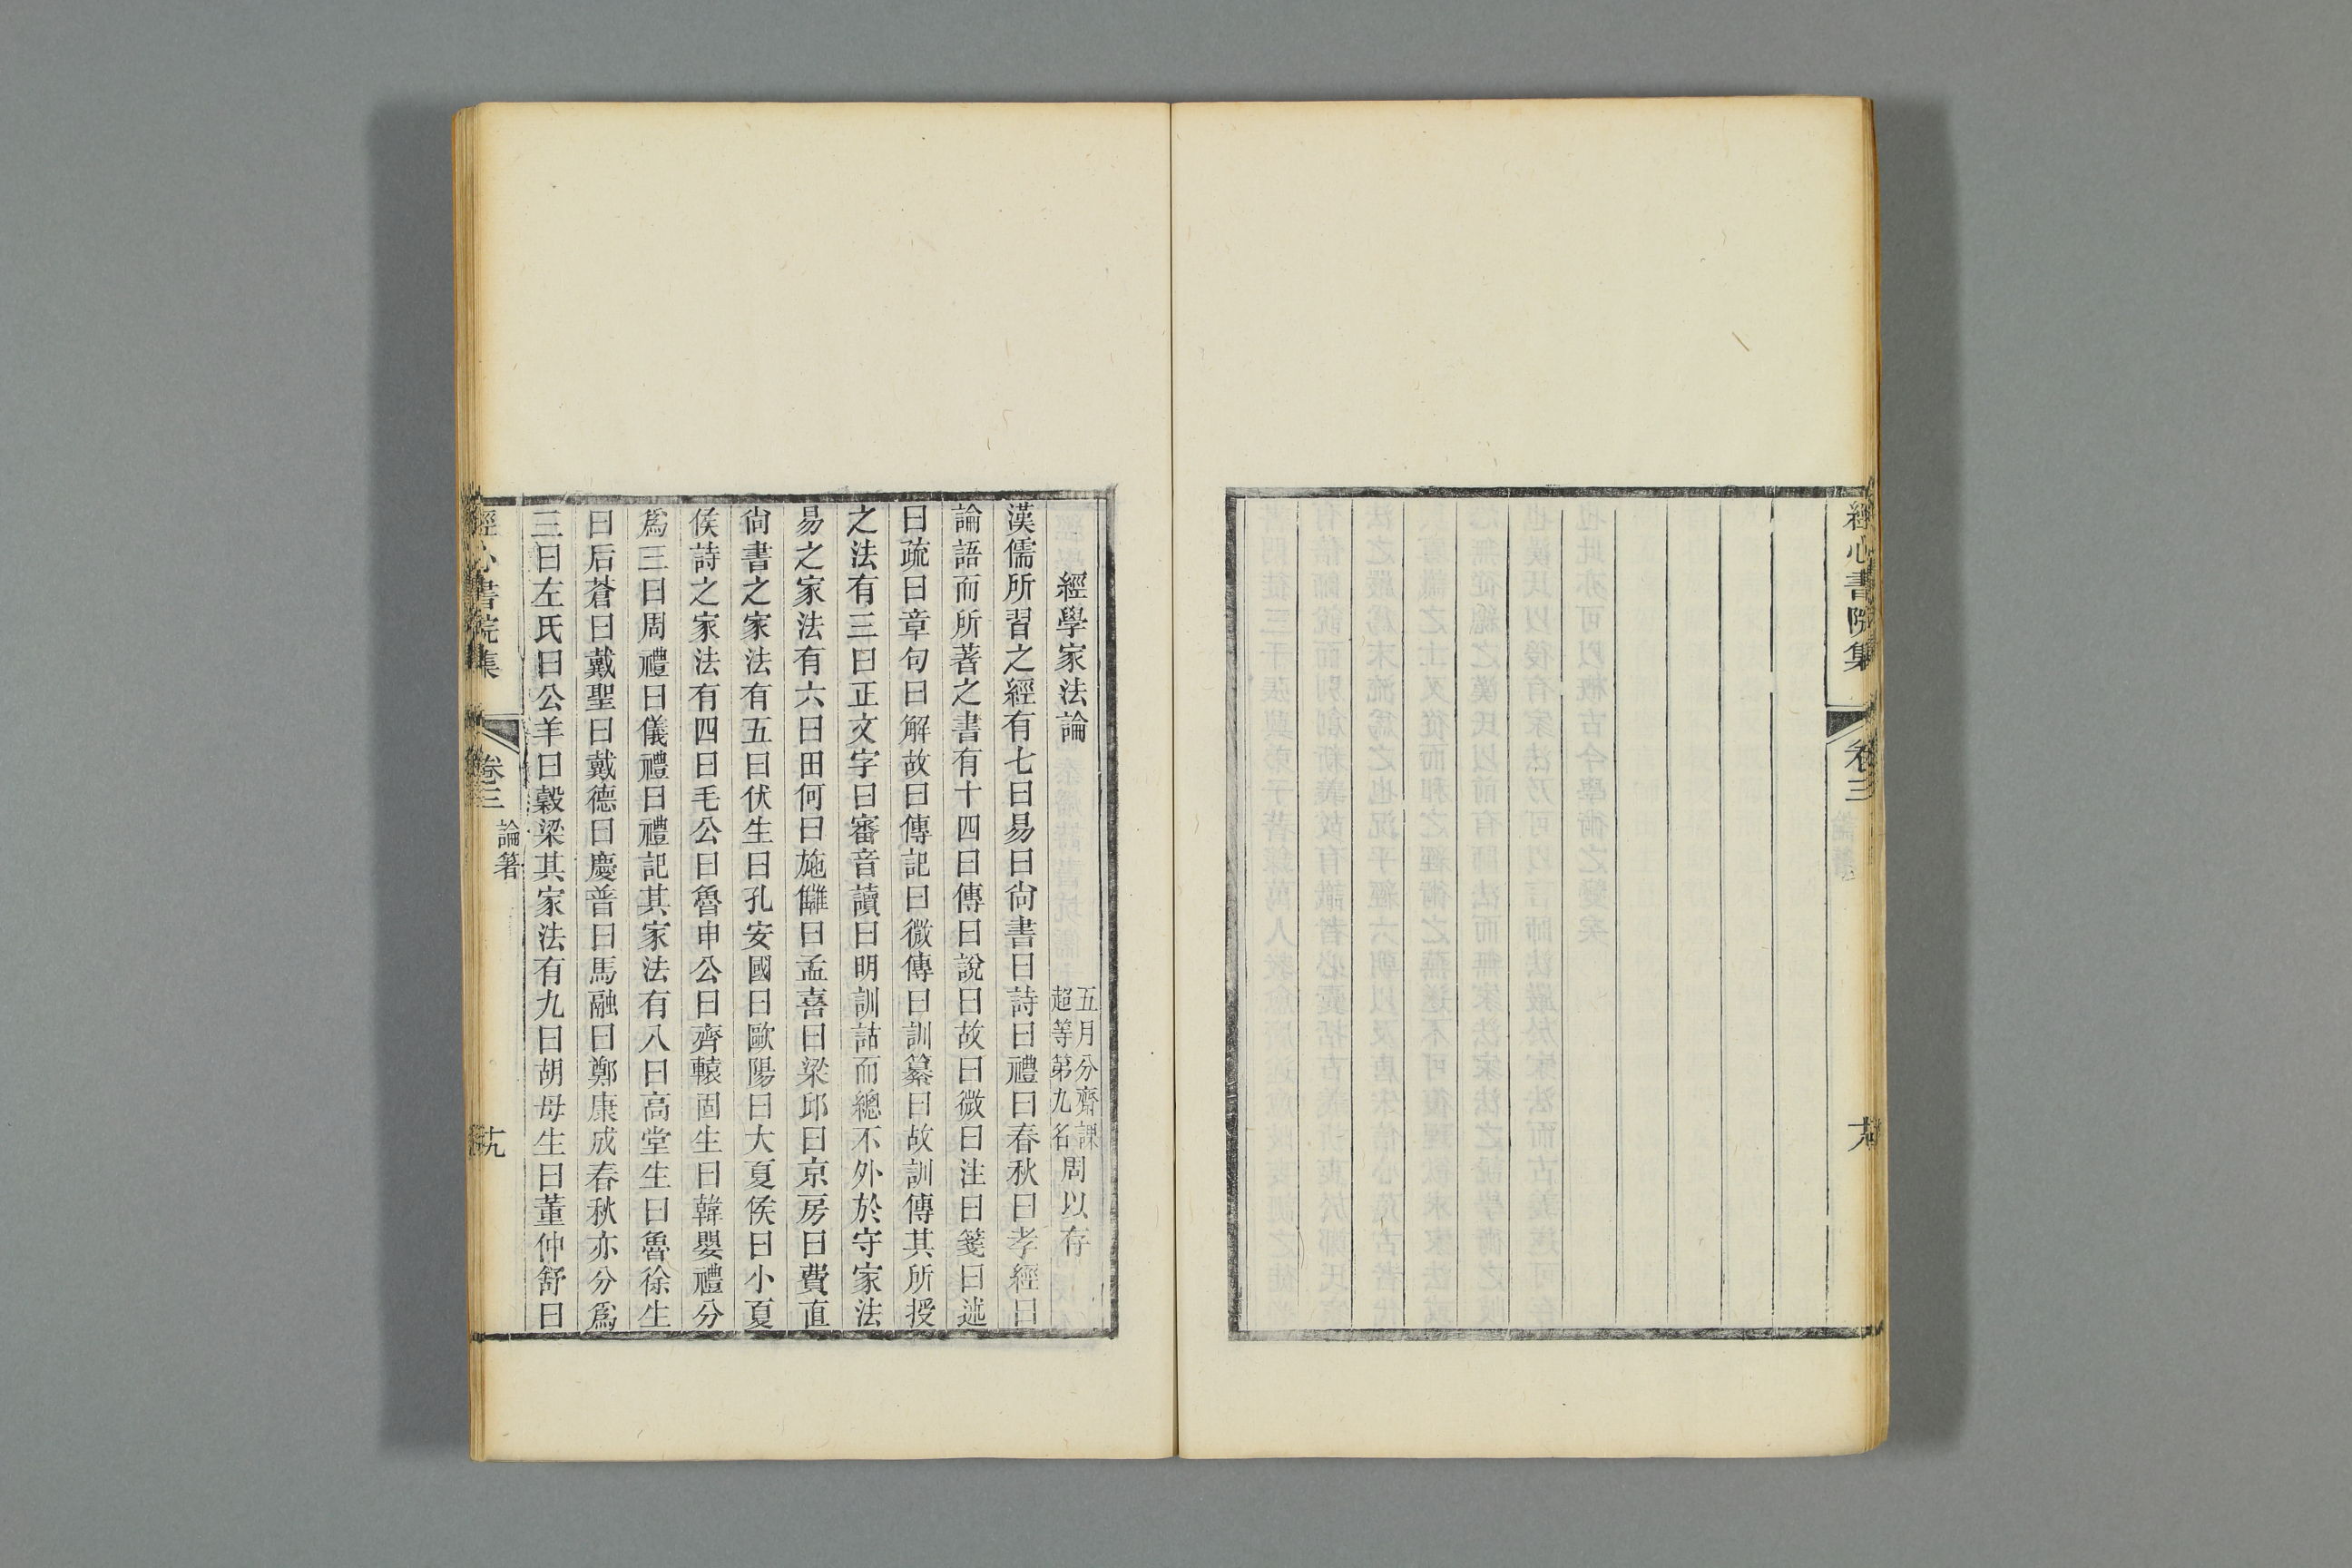 經心書院集
卷三
十八
經學家法論
五月分齋課
超等第九名
周以存
漢儒所習之經有七曰易曰尙書曰詩曰禮曰春秋曰孝經曰
論語而所著之書有十四曰傳曰說曰故曰微曰注曰箋曰述
曰疏曰章句曰解故曰傳記曰微傳曰訓纂曰故訓傳其所授
之法有三曰正文字曰審音讀曰明訓詁而總不外於守家法
易之家法有六曰田何曰施讎曰孟喜曰梁邱曰京房曰費直
尙書之家法有五曰伏生曰孔安國曰歐陽曰大夏侯曰小夏
侯詩之家法有四曰毛公曰魯申公曰齊轅固生曰韓嬰禮分
爲三曰周禮曰儀禮曰禮記其家法有八曰高堂生曰魯徐生
曰后蒼曰戴聖曰戴德曰慶普曰馬融曰鄭康成春秋亦分爲
三曰左氏曰公羊曰穀梁其家法有九曰胡母生曰董仲舒曰
經心書院集
卷三
論著
十九